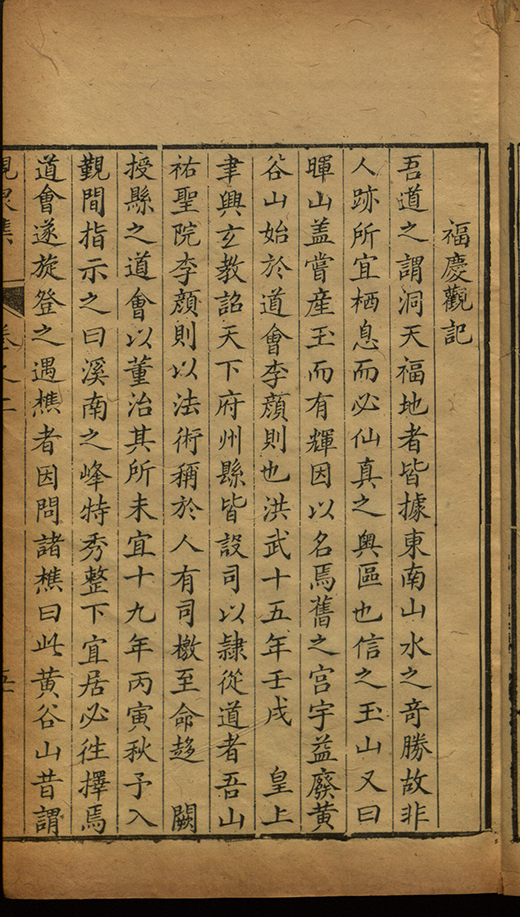 福慶觀記
吾道之謂洞天福地者皆據東南山水之奇勝故非
人跡所宜栖息而必仙真之奥區也信之玉山又曰
暉山盖嘗産玉而有輝因以名焉舊之宫宇益廢黄
谷山始於道會李顔則也洪武十五年壬戌 皇上
聿興玄教詔天下府州縣皆設司以隷從道者吾山
祐聖院李顔則以法術稱於人有司檄至命趍 闕
授縣之道會以董治其所未宜十九年丙寅秋予入
觀間指示之曰溪南之峰特秀整下宜居必徃擇焉
道會遂旋登之遇樵者因問諸樵曰此黄谷山昔謂